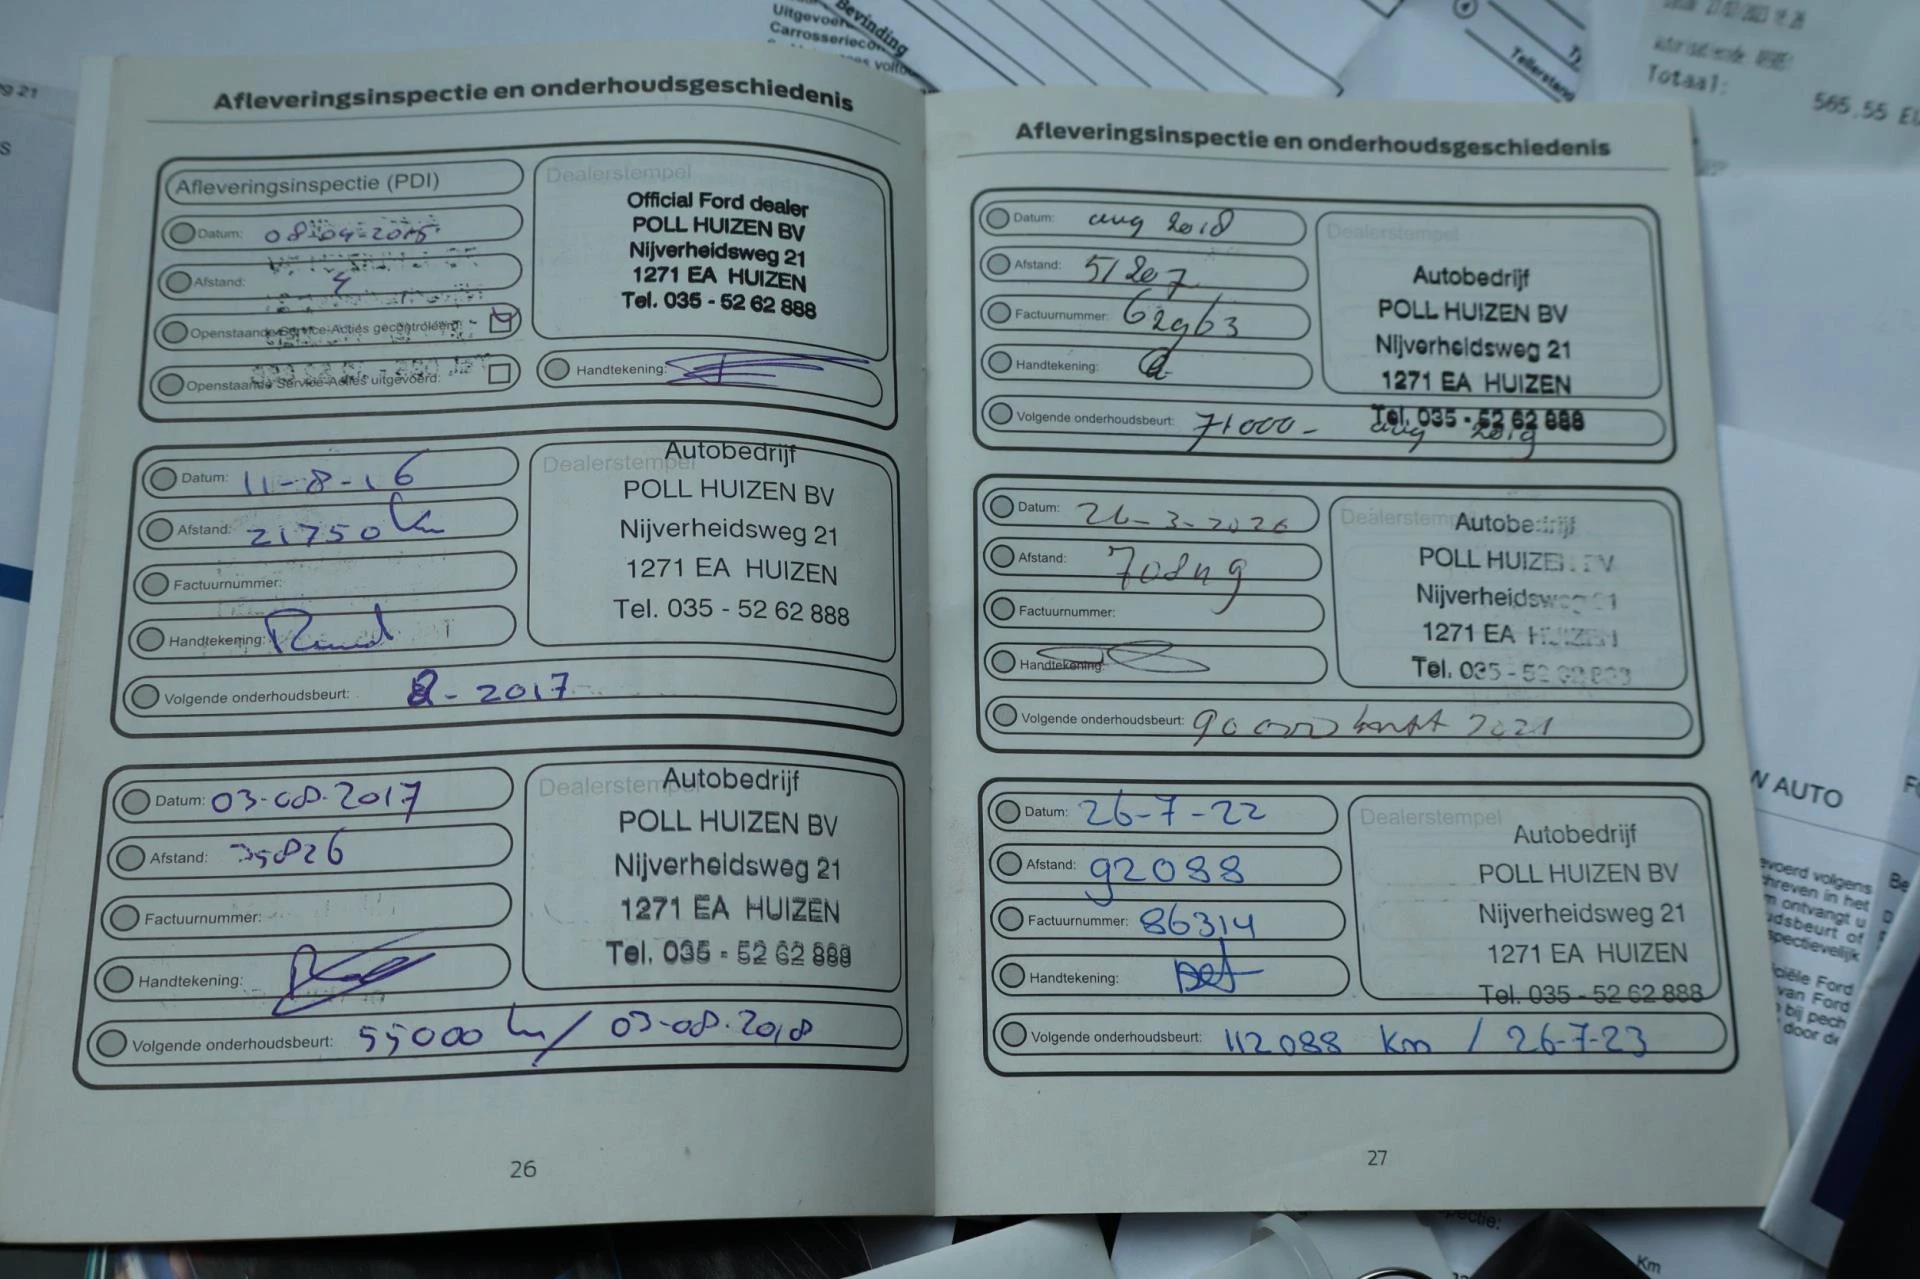 Bevinding
Uitgevoer
Carrosseriecon
Tellerstand
Totaal:
565,55 EU
Afleveringsinspectie en onderhoudsgeschiedenis
Afleveringsinspectie (PDI)
Datum: 08-04-2015
Afstand: 4
Openstaande Service-Acties gecontroleerd:
Openstaande Service-Acties uitgevoerd:
Dealerstempel
Official Ford dealer
POLL HUIZEN BV
Nijverheidsweg 21
1271 EA HUIZEN
Tel. 035 - 52 62 888
Handtekening:
Datum: 11-8-16
Afstand: 21750 km
Factuurnummer:
Handtekening:
Volgende onderhoudsbeurt: 8-2017
Dealerstempel
Autobedrijf
POLL HUIZEN BV
Nijverheidsweg 21
1271 EA HUIZEN
Tel. 035 - 52 62 888
Datum: 03-08-2017
Afstand: 35826
Factuurnummer:
Handtekening:
Volgende onderhoudsbeurt: 55000 km / 03-08-2018
Dealerstempel
Autobedrijf
POLL HUIZEN BV
Nijverheidsweg 21
1271 EA HUIZEN
Tel. 035 - 52 62 888
26
Afleveringsinspectie en onderhoudsgeschiedenis
Datum: aug 2018
Afstand: 51207
Factuurnummer: 62963
Handtekening:
Volgende onderhoudsbeurt: 71000 - aug 2019
Dealerstempel
Autobedrijf
POLL HUIZEN BV
Nijverheidsweg 21
1271 EA HUIZEN
Tel. 035 - 52 62 888
Datum:
Afstand:
Factuurnummer:
Handtekening:
Volgende onderhoudsbeurt: 90000 2021
Dealerstempel
Autobedrijf
POLL HUIZEN BV
Nijverheidsweg 21
1271 EA HUIZEN
Tel. 035 - 52 62 888
Datum: 26-7-22
Afstand: 92088
Factuurnummer: 86314
Handtekening:
Volgende onderhoudsbeurt: 112088 km / 26-7-23
Dealerstempel
Autobedrijf
POLL HUIZEN BV
Nijverheidsweg 21
1271 EA HUIZEN
Tel. 035 - 52 62 888
27
W AUTO
evoerd volgens
hreven in het
m ontvangt u
udsbeurt of
spectievelijk
ciële Ford
van Ford
bij pech
door de
Km